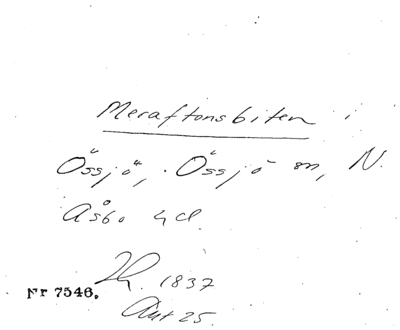 Meraftonsbiten i
Össjö, Össjö sn, N.
Åsbo hd.
1837
Nr 7546.
Ant 25.